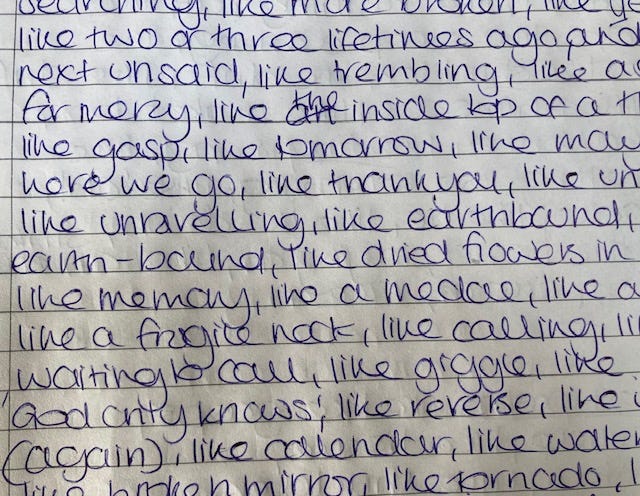 searching, like more broken, like
like two or three lifetimes ago and
next unsaid, like trembling, like
for mercy, like the inside top of a
like gasp, like tomorrow, like
here we go, like thankyou, like un
like unravelling, like earthbound,
earth-bound, like dried flowers in
like memory, like a medal, like a
like a fragile neck, like calling, li
waiting to call, like giggle, like
'God only knows', like reverse, like
(again), like calendar, like water
like broken mirror, like tornado,